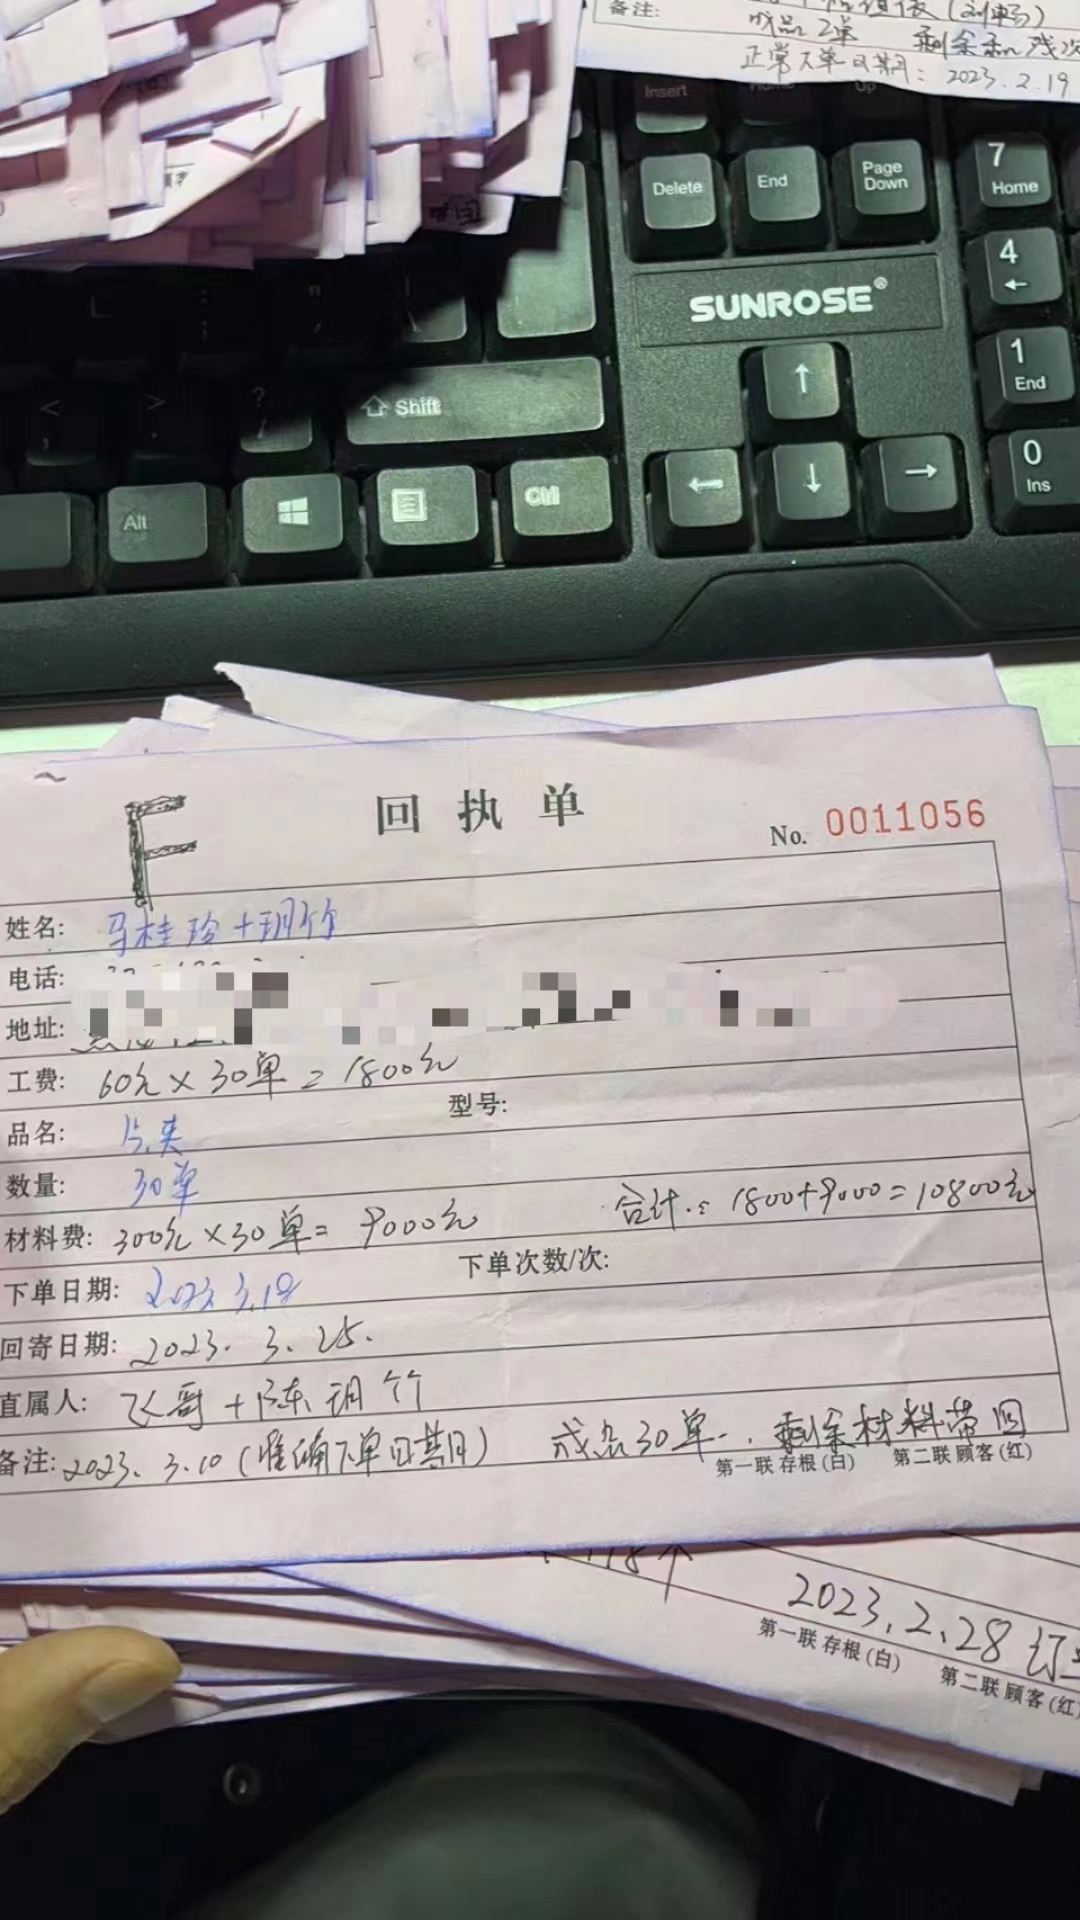 备注:
成品2单 剩余和残次
正常下单日期: 2023.2.19
Insert
Home
Up
Delete
End
Page Down
7 Home
4
SUNROSE®
1 End
Shift
0 Ins
Alt
Ctrl
回执单
No. 0011056
F
姓名: 马桂玲+玥竹
电话:
地址:
工费: 60元×30单=1800元
型号:
品名: 片夹
数量: 30单
材料费: 300元×30单=9000元 合计: 1800+9000=10800元
下单次数/次:
下单日期: 2023.3.18
回寄日期: 2023.3.25.
直属人: 飞哥+陈玥竹
备注: 2023.3.10(准确下单日期) 成品30单. 剩余材料带回
第一联 存根(白) 第二联 顾客(红)
2023.2.28
第一联 存根(白) 第二联 顾客(红)